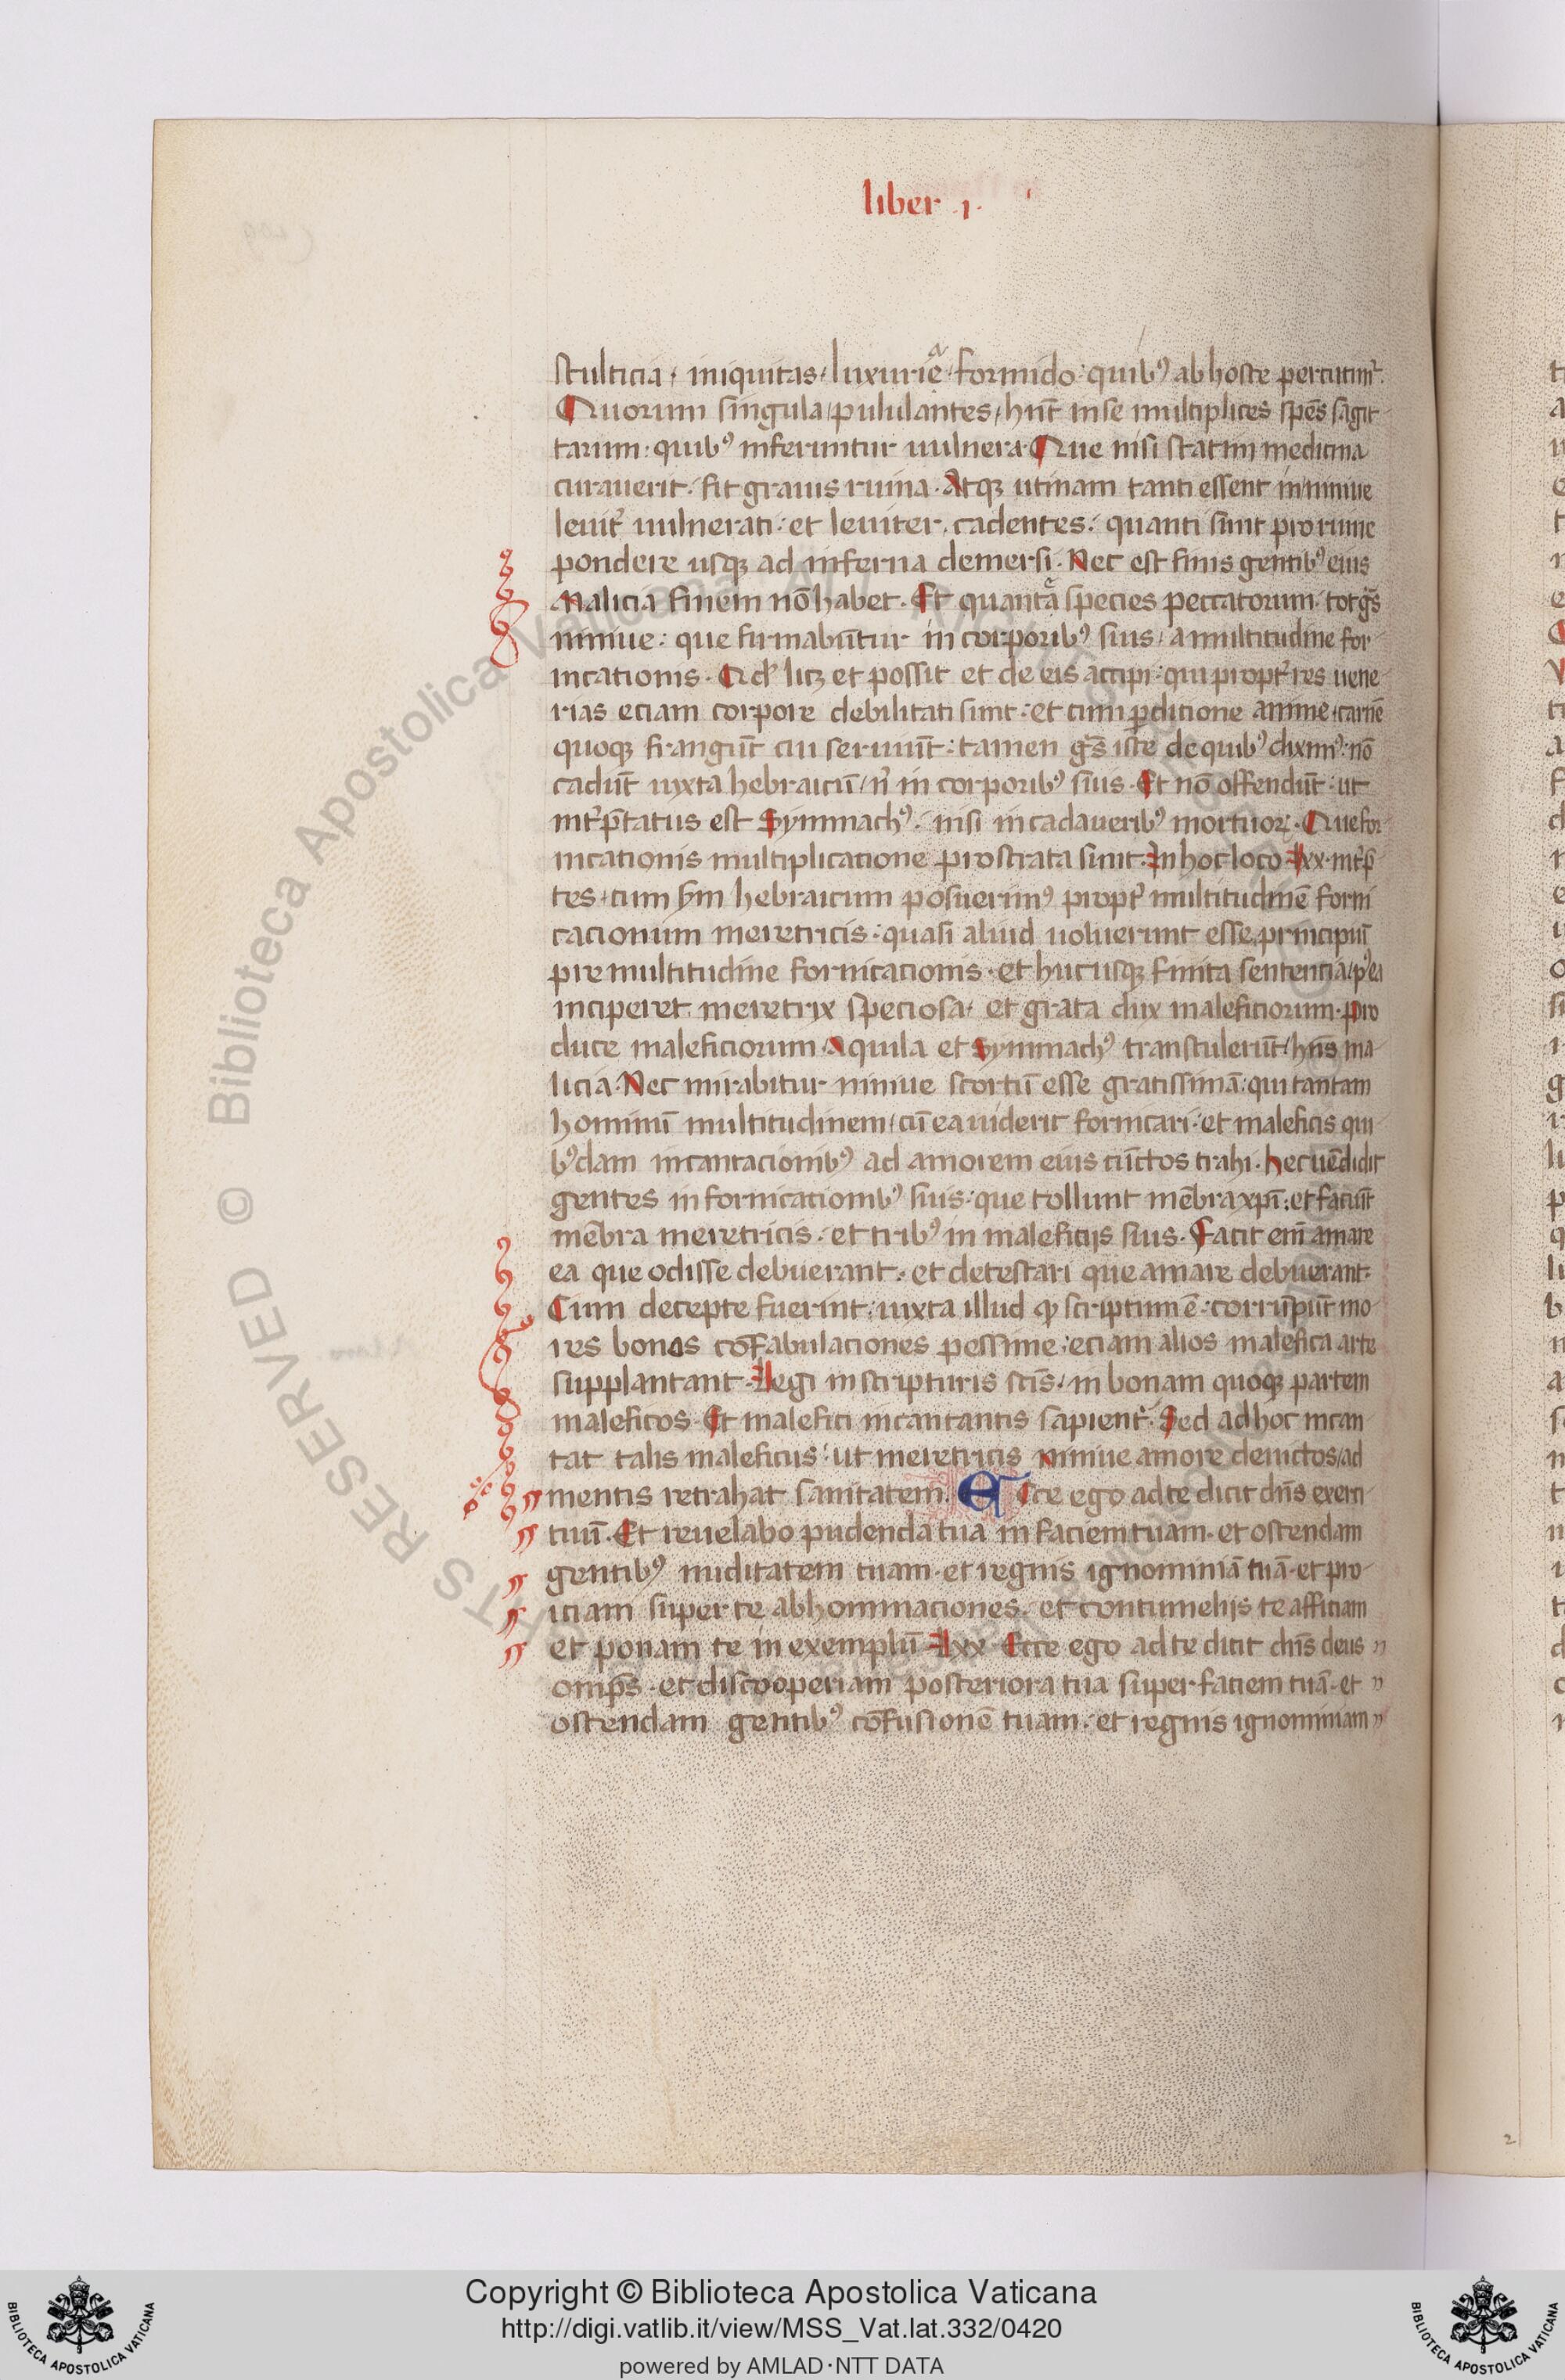 liber .i.
stulticia, iniquitas, luxurie, formido: quibꝰ ab hoste percutimͬ.
Quorum singula, pululantes, hn̄t in se multiplices spēs sagit-
tarum: quibꝰ inferuntur uulnera. Que nisi statim medicina
curauerit: fit grauis ruina. Atqꝫ utinam tanti essent in niniue
leuit͛ uulnerati: et leuiter cadentes: quanti sunt pro ruine
pondere usqꝫ ad inferna demersi. Nec est finis gentibꝰ eius
Malicia finem nō habet. Et quantā species peccatorum: tot gēs
niniue: que firmabūtur in corporibꝰ suis, a multitudine for-
nicationis. Qđ licꝫ et possit et de eis accipi: qui propt͛ res uene-
rias eciam corpore debilitati sunt: et cum ꝑditione anime, carnē
quoqꝫ frangūt cui seruiūt: tamen gēs iste de quibꝰ diximꝰ: nō
cadūt iuxta hebraicū, n̄ in corporibꝰ suis. Et nō offendūt: ut
int͛p̄tatus est Symmachꝰ: nisi in cadaueribꝰ mortuoꝝ. Que for-
nicationis multiplicatione prostrata sunt. In hoc loco Lxx. int͛p̄-
tes, cum ẜm hebraicum posuerimꝰ propt͛ multitudinē forni
cacionum meretricis: quasi aliud uoluerunt esse principiū
pre multitudine fornicacionis. et hucusqꝫ finita sententia, pꝰea
inciperet meretrix speciosa, et grata dux maleficiorum. Pro
duce maleficiorum Aquila et Symmachꝰ transtulerūt, hn̄s ma-
licia. Nec mirabitur niniue scortū esse gratissimā: qui tantam
hominū multitudinem, cū ea uiderit fornicari: et maleficis qui
bꝰdam incantacionibꝰ ad amorem eius cūctos trahi. Hec uēdidit
gentes in fornicationibꝰ suis: que tollunt mēbra xp̄i: et faciūt
mēbra meretricis: et tribꝰ in maleficijs suis. Facit enī amare
ea que odisse debuerant: et detestari que amare debuerant.
Cum decepte fuerint: iuxta illud ꝙ scriptum ē: corrūpūt mo-
res bonos cōfabulaciones pessime: eciam alios malefica arte
supplantant. Legi in scripturis scīs, in bonam quoqꝫ partem
maleficos. Et malefici incantantis sapient͛. Sed ad hoc incan
tat talis maleficus: ut meretricis Niniue amore deuictos, ad
mentis retrahat sanitatem. Ecce ego ad te dicit dn̄s exerci-
tuū. Et reuelabo pudenda tua in faciem tuam. et ostendam
gentibꝰ nuditatem tuam. et regnis ignominiā tuā. et pro-
iciam super te abhominaciones. et contumelijs te afficiam
et ponam te in exemplū Lxx. Ecce ego ad te dicit dn̄s deus
omp̄s. et discooperiam posteriora tua super faciem tuā. et
ostendam gentibꝰ cōfusionē tuam: et regnis ignominiam
2
© Biblioteca Apostolica Vaticana
Copyright © Biblioteca Apostolica Vaticana
http://digi.vatlib.it/view/MSS_Vat.lat.332/0420
powered by AMLAD·NTT DATA
BIBLIOTECA APOSTOLICA VATICANA
BIBLIOTECA APOSTOLICA VATICANA